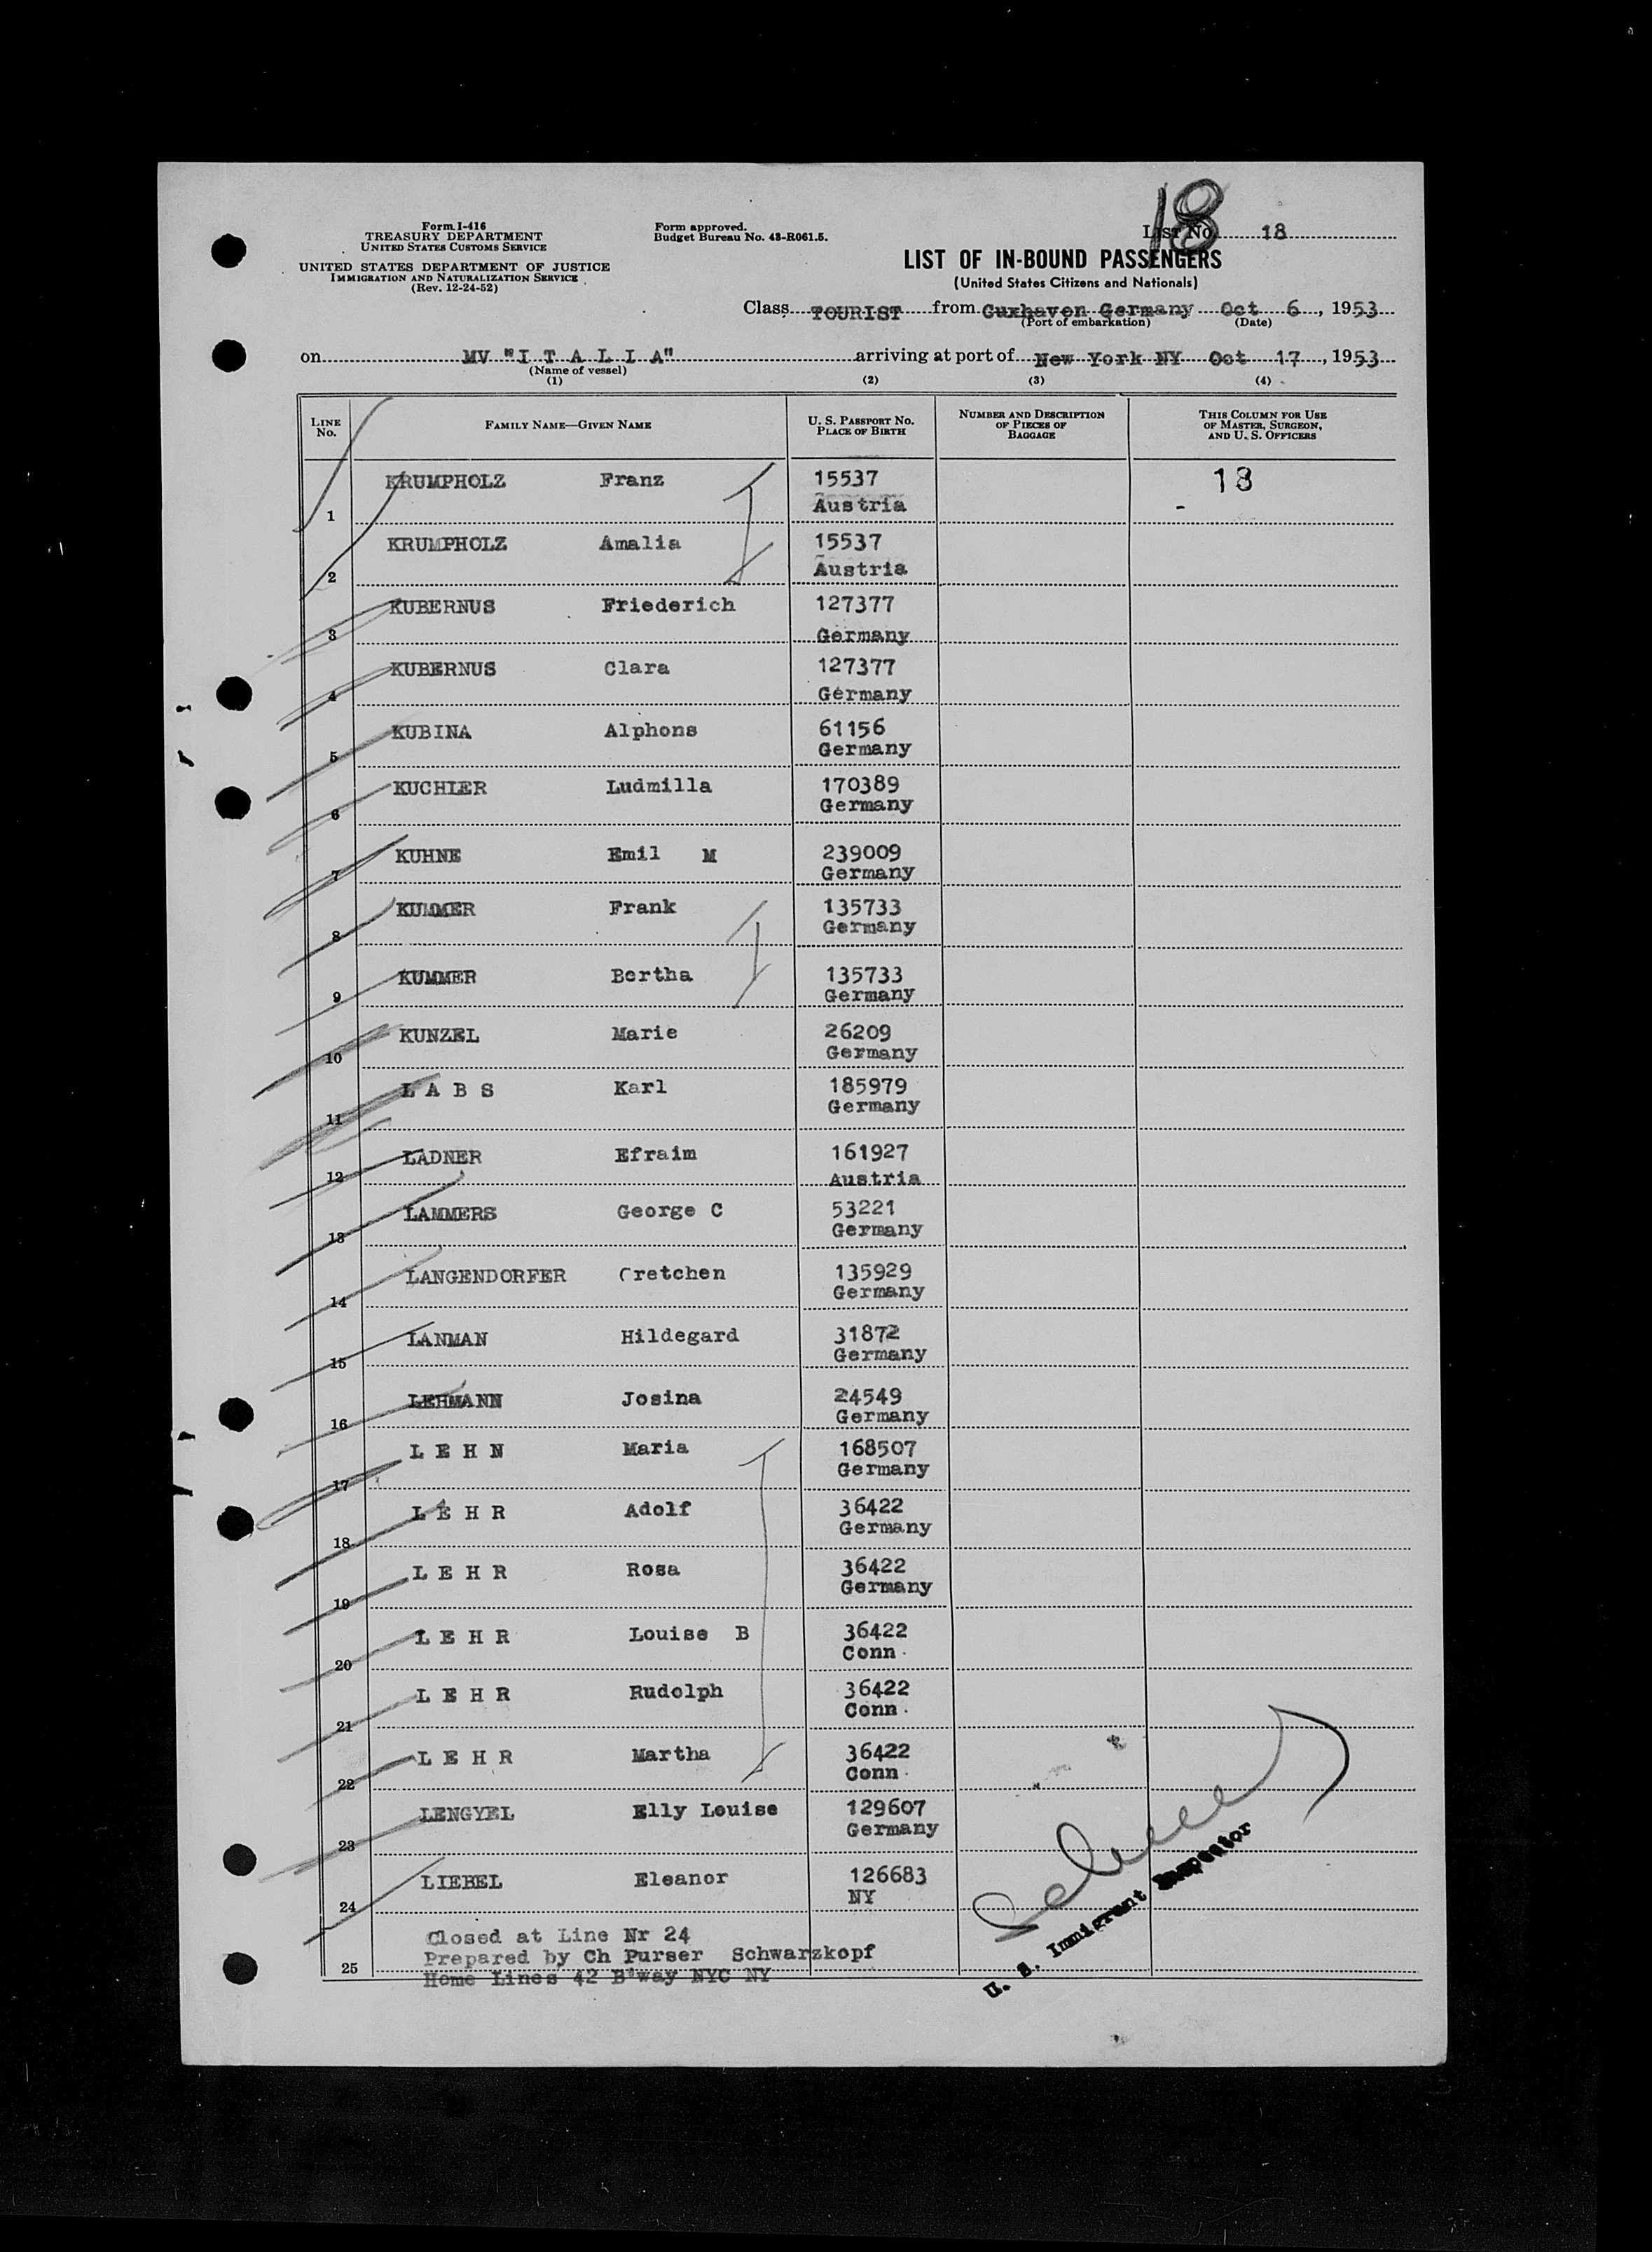 18
Form I-416
TREASURY DEPARTMENT
UNITED STATES CUSTOMS SERVICE
UNITED STATES DEPARTMENT OF JUSTICE
IMMIGRATION AND NATURALIZATION SERVICE
(Rev. 12-24-52)
Form approved.
Budget Bureau No. 43-R061.5.
List No. 18
LIST OF IN-BOUND PASSENGERS
(United States Citizens and Nationals)
Class TOURIST from Cuxhaven Germany Oct 6, 1953
(Port of embarkation) (Date)
on MV "I T A L I A" arriving at port of New York NY Oct 17, 1953
(Name of vessel)
(1) (2) (3) (4)
LINE No. FAMILY NAME—GIVEN NAME U. S. PASSPORT No. PLACE OF BIRTH NUMBER AND DESCRIPTION OF PIECES OF BAGGAGE THIS COLUMN FOR USE OF MASTER, SURGEON, AND U. S. OFFICERS
1 KRUMPHOLZ Franz 15537 18
Austria
2 KRUMPHOLZ Amalia 15537
Austria
3 KUBERNUS Friederich 127377
Germany
4 KUBERNUS Clara 127377
Germany
5 KUBINA Alphons 61156
Germany
6 KUCHLER Ludmilla 170389
Germany
7 KUHNE Emil M 239009
Germany
8 KUMMER Frank 135733
Germany
9 KUMMER Bertha 135733
Germany
10 KUNZEL Marie 26209
Germany
11 L A B S Karl 185979
Germany
12 LADNER Efraim 161927
Austria
13 LAMMERS George C 53221
Germany
14 LANGENDORFER Gretchen 135929
Germany
15 LANMAN Hildegard 31872
Germany
16 LEHMANN Josina 24549
Germany
17 L E H N Maria 168507
Germany
18 L E H R Adolf 36422
Germany
19 L E H R Rosa 36422
Germany
20 L E H R Louise B 36422
Conn.
21 L E H R Rudolph 36422
Conn.
22 L E H R Martha 36422
Conn.
23 LENGYEL Elly Louise 129607
Germany
24 LIEBEL Eleanor 126683
NY
25 Closed at Line Nr 24
Prepared by Ch Purser Schwarzkopf
Home Lines 42 B'way NYC NY
U. S. Immigrant Inspector